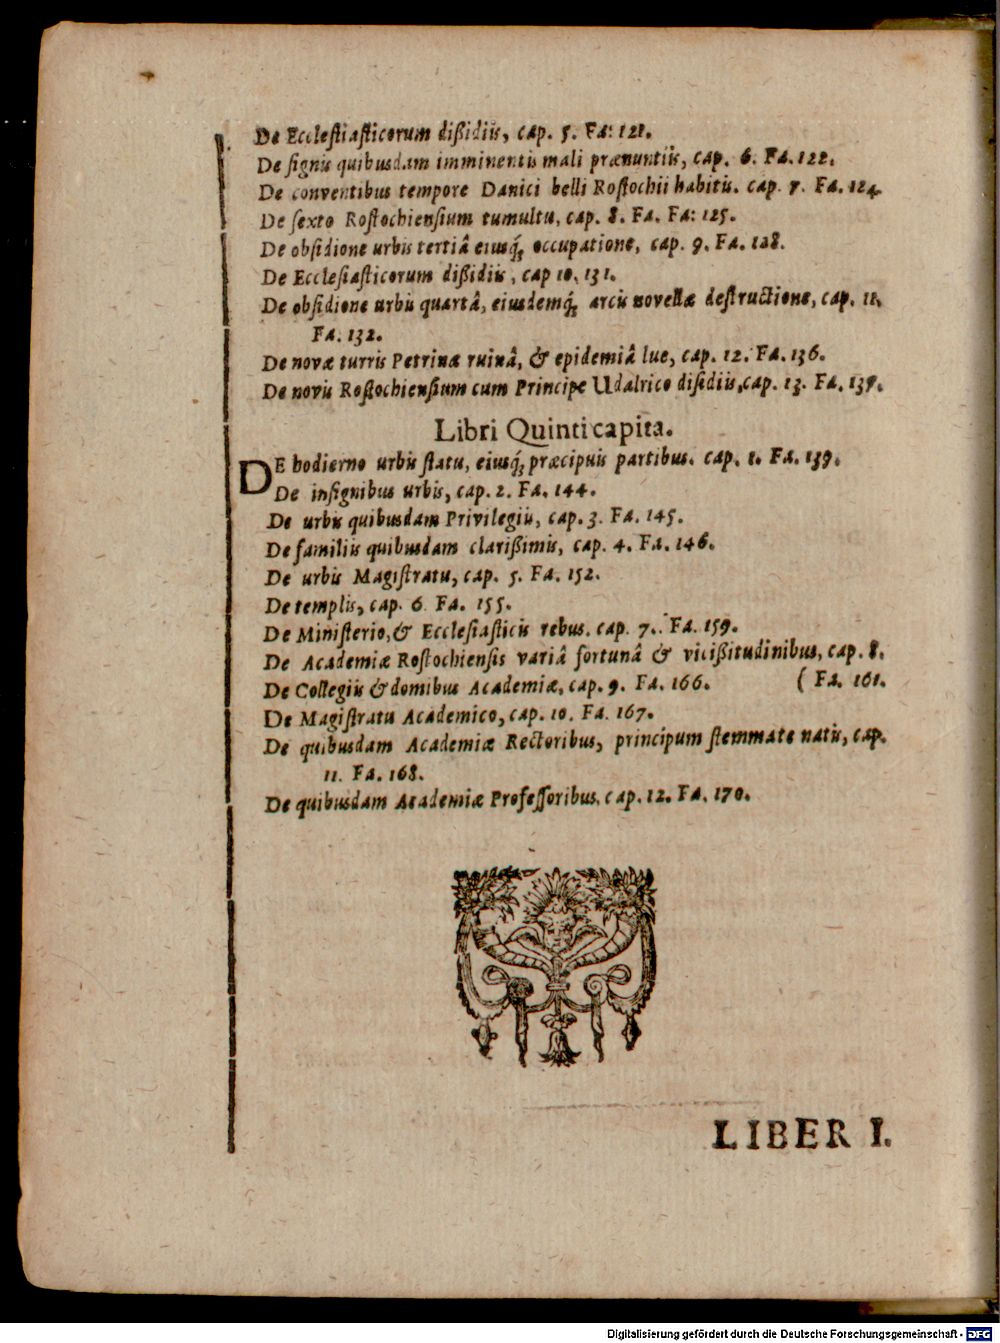 De Ecclesiasticorum dißidiis, cap. 5. Fa: 121.
De signis quibusdam imminentis mali prænuntiis, cap. 6. Fa. 122.
De conventibus tempore Danici belli Rostochii habitis. cap. 7. Fa. 124.
De sexto Rostochiensium tumultu, cap. 8. Fa. Fa: 125.
De obsidione urbis tertiâ eiusq́; occupatione, cap. 9. Fa. 128.
De Ecclesiasticorum dißidiis, cap 10. 131.
De obsidione urbis quartâ, eiusdemq́; arcis novellæ destructione, cap. 11.
Fa. 132.
De novæ turris Petrinæ ruinâ, & epidemiâ lue, cap. 12. Fa. 136.
De novis Rostochiensium cum Principe Udalrico disidiis, cap. 13. Fa. 137.
Libri Quinti capita.
DE hodierno urbis statu, eiusq́; præcipuis partibus. cap. 1. Fa. 139.
De insignibus urbis, cap. 2. Fa. 144.
De urbis quibusdam Privilegiis, cap. 3. Fa. 145.
De familiis quibusdam clarißimis, cap. 4. Fa. 146.
De urbis Magistratu, cap. 5. Fa. 152.
De templis, cap. 6 Fa. 155.
De Ministerio, & Ecclesiasticis rebus. cap. 7. Fa. 159.
De Academiæ Rostochiensis variâ fortunâ & vicißitudinibus, cap. 8.
De Collegiis & domibus Academiæ, cap. 9. Fa. 166. ( Fa. 161.
De Magistratu Academico, cap. 10. Fa. 167.
De quibusdam Academiæ Rectoribus, principum stemmate natis, cap.
11. Fa. 168.
De quibusdam Academiæ Professoribus, cap. 12. Fa. 170.
LIBER I.
Digitalisierung gefördert durch die Deutsche Forschungsgemeinschaft - DFG